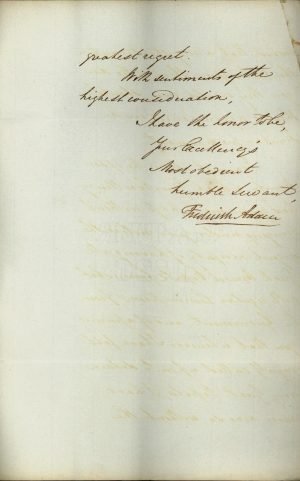 greatest regret.
With sentiments of the
highest consideration,
I have the honor to be,
Your Excellency's
Most obedient
humble Servant,
Frederick Adam